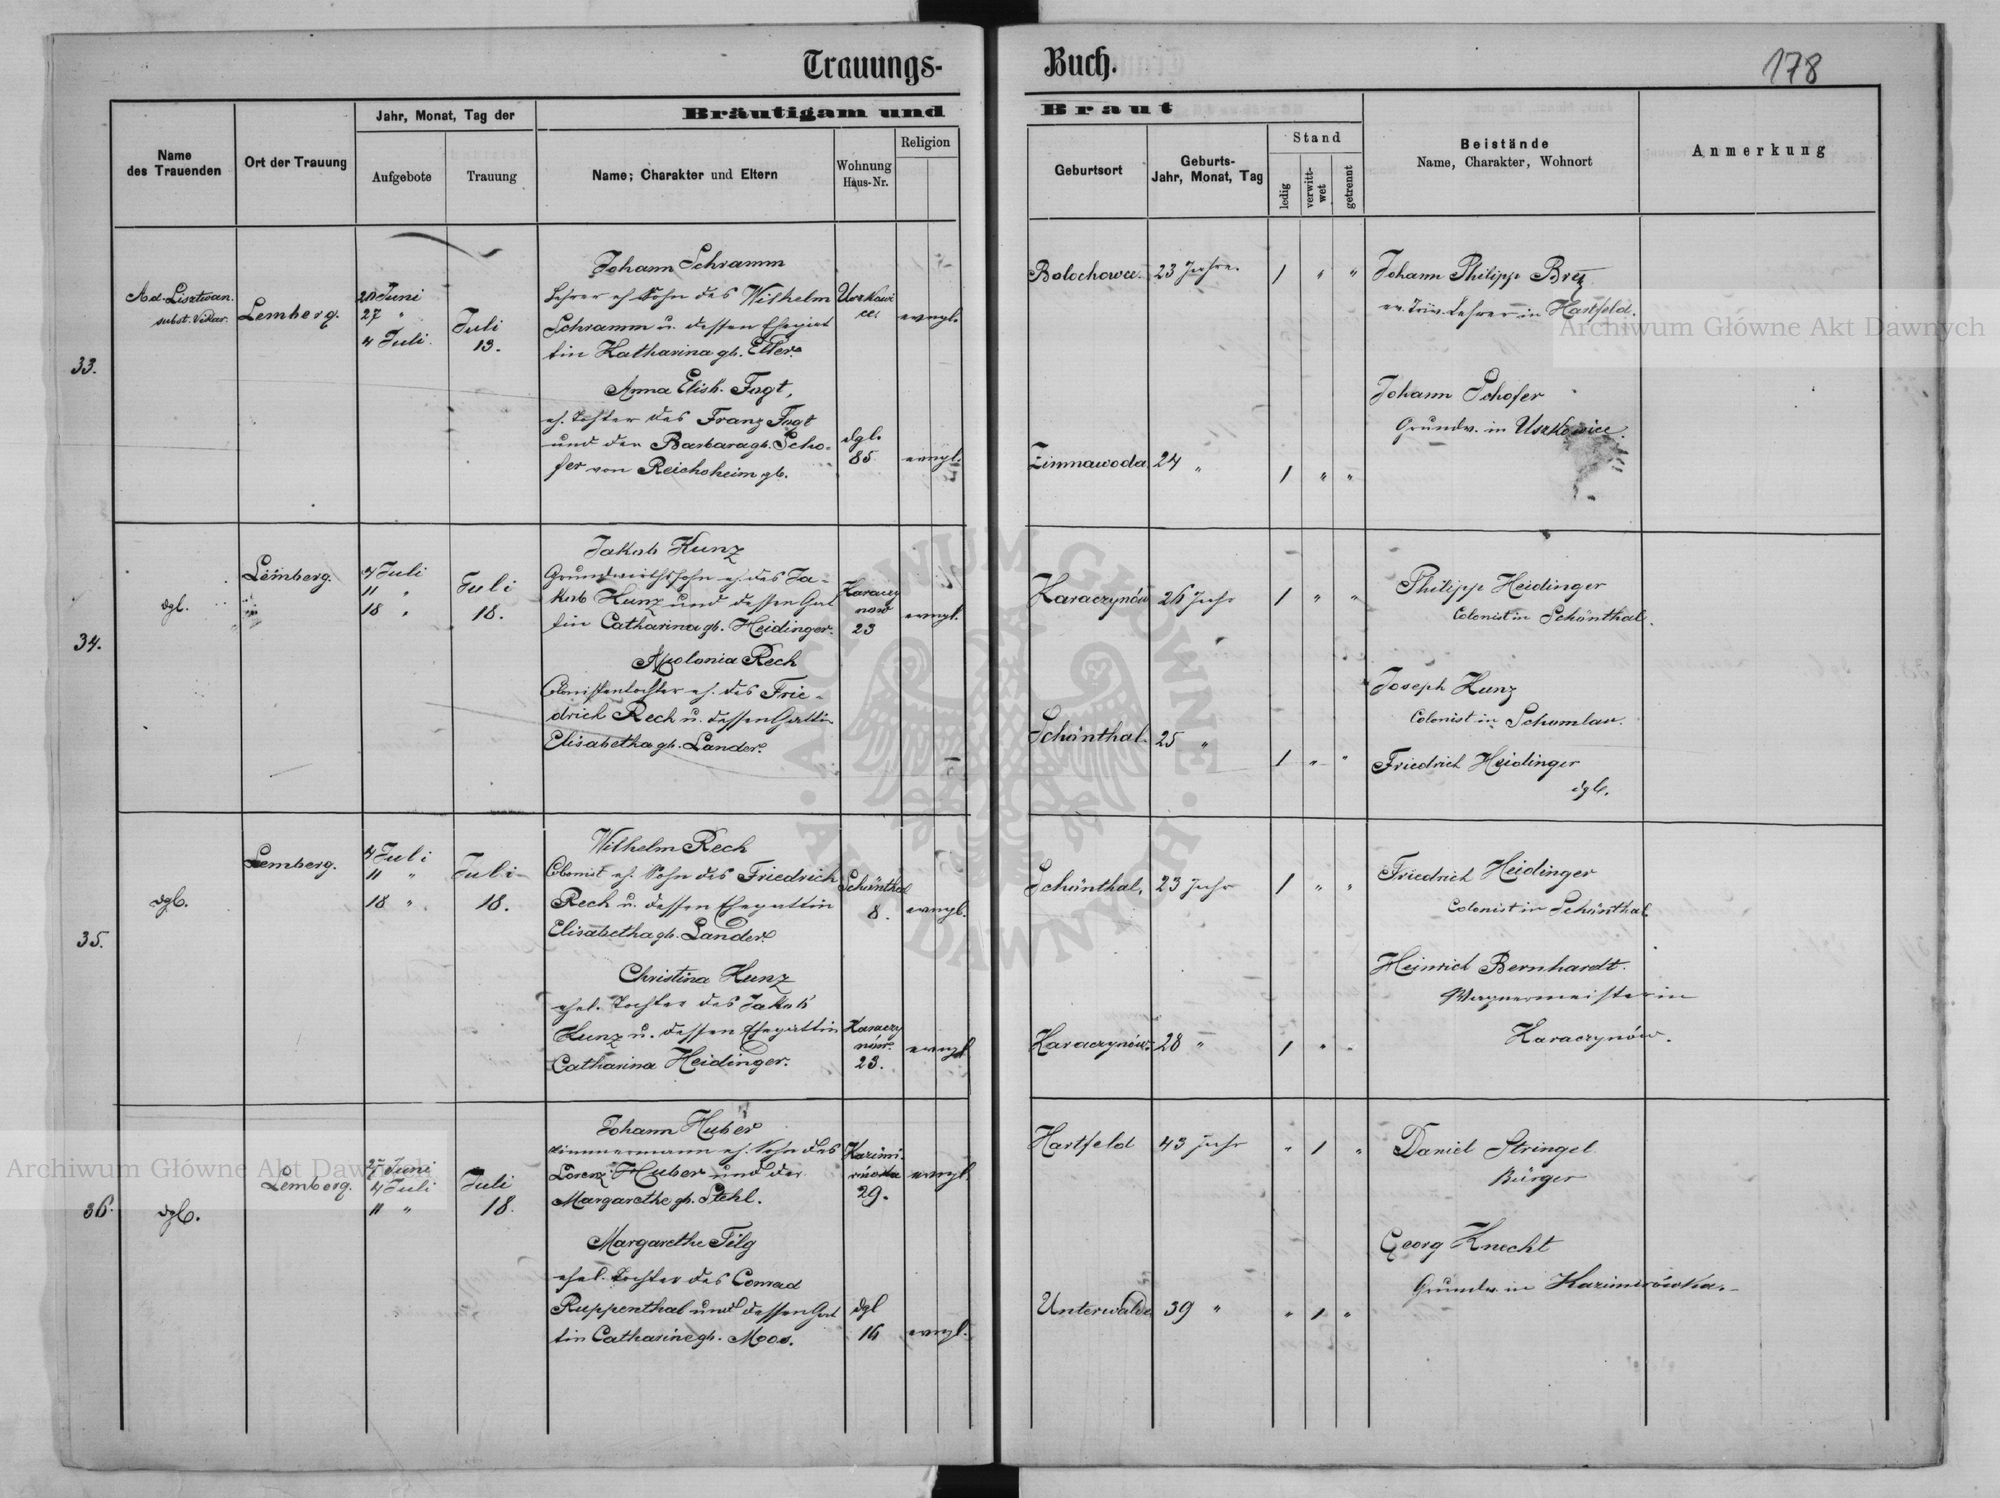 Trauungs-Buch.
178
Bräutigam und Braut
Name des Trauenden
Ort der Trauung
Jahr, Monat, Tag der
Aufgebote
Trauung
Name; Charakter und Eltern
Wohnung Haus-Nr.
Religion
Geburtsort
Geburts-Jahr, Monat, Tag
Stand
ledig
verwittwet
getrennt
Beistände
Name, Charakter, Wohnort
Anmerkung
33.
Ad. Lisztwan.
subst. Vikar.
Lemberg.
20 Juni
27 "
4 Juli.
Juli
13.
Johann Schramm
Lehrer eh. Sohn des Wilhelm
Schramm u. dessen Ehegat
tin Katharina gb. Eller.
Uszkowi
ce.
evngl.
Bolechowce.
23 Jahre.
1 " "
Johann Philipp Brez
ev. Triv. Lehrer in Hartfeld.
Anna Elisb. Fugt,
eh. Tochter des Franz Fugt
und der Barbara gb. Scho-
fer von Reichsheim gb.
dgl.
85
evngl.
Zimnawoda
24 "
1 " "
Johann Schofer
Grundw. in Uszkowice.
34.
dgl.
Lemberg.
4 Juli
11 "
18 "
Juli
18.
Jakob Kunz
Grundwirthssohn eh. des Ja-
kob Kunz und dessen Gat
tin Catharina gb. Heidinger.
Karaczy
now
23
evngl.
Karaczynów
26 Jahr
1 " "
Philipp Heidinger
Colonist in Schönthal.
Apolonia Rech
Colonistentochter eh. des Frie-
drich Rech u. dessen Gattin
Elisabetha gb. Lander.
Schönthal.
25 "
1 " "
Joseph Kunz
Colonist in Schumlau.
Friedrich Heidinger
dgl.
35.
dgl.
Lemberg.
4 Juli
11 "
18 "
Juli
18.
Wilhelm Rech
Colonist eh. Sohn des Friedrich
Rech u. dessen Ehegattin
Elisabetha gb. Lander.
Schönthal
8.
evngl.
Schönthal,
23 Jahr
1 " "
Friedrich Heidinger
Colonist in Schönthal.
Christina Kunz
ehel. Tochter des Jakob
Kunz u. dessen Ehegattin
Catharina Heidinger.
Karaczy
nów.
23.
evngl.
Karaczynów.
28 "
1 " "
Heinrich Bernhardt.
Wagnermeister in
Karaczynów.
36.
dgl.
Lemberg.
27 Juni
4 Juli
11 "
Juli
18.
Johann Huber
Zimmermann eh. Sohn des
Lorenz Huber und der
Margarethe gb. Stehl.
Kazimi
rówka
29.
evngl.
Hartfeld
43 Jahr
" 1 "
Daniel Stringel
Bürger
Margarethe Filg
ehel. Tochter des Conrad
Ruppenthal und dessen Gat
tin Catharine gb. Moos.
dgl
16
evngl.
Unterwalde
39 "
" 1 "
Georg Knecht
Grundw. in Kazimirówka.
Archiwum Główne Akt Dawnych
Archiwum Główne Akt Dawnych
ARCHIWUM GŁÓWNE AKT DAWNYCH